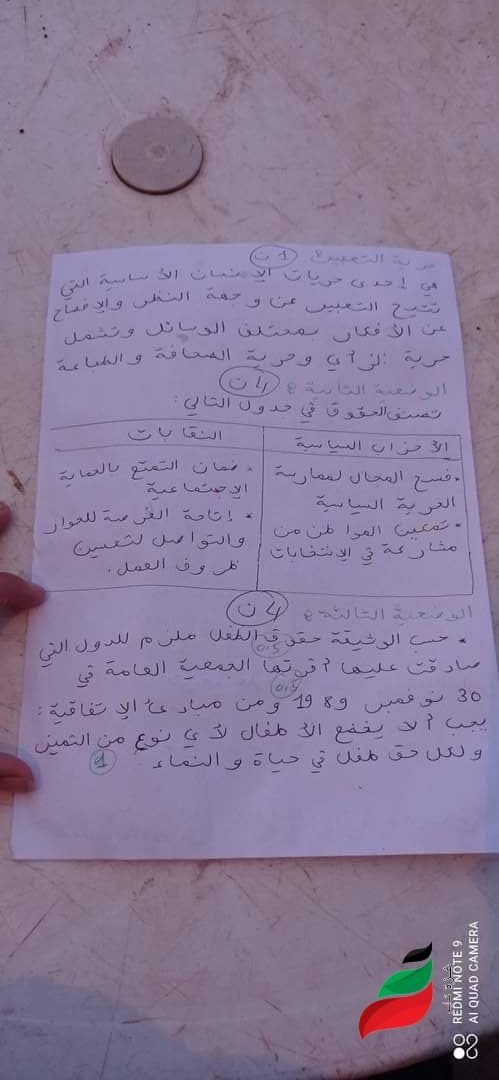 حرية التعبير: 1ن
هي إحدى حريات الإنسان الأساسية التي
تتيح التعبير عن وجهة النظر والإفصاح
عن الأفكار بمختلف الوسائل وتشمل
حرية الرأي وحرية الصحافة والطباعة
الوضعية الثانية: 4ن
تصنف الحقوق في جدول التالي:
الأحزاب السياسية
النقابات
• فسح المجال لممارسة
الحرية السياسية
• تمكين المواطن من
مشاركة في الانتخابات
• ضمان التمتع بالحماية
الاجتماعية
• إتاحة الفرصة للحوار
والتواصل لتحسين
ظروف العمل.
الوضعية الثالثة: 4ن
• حسب الوثيقة حقوق الطفل ملزم للدول التي
0,5
صادقت عليها أقرتها الجمعية العامة في
0,5
30 نوفمبر 1989 ومن مبادئ الاتفاقية:
يجب ألا يخضع الأطفال لأي نوع من التميز
ولكل حق طفل في حياة والنماء.
1
REDMI NOTE 9
AI QUAD CAMERA